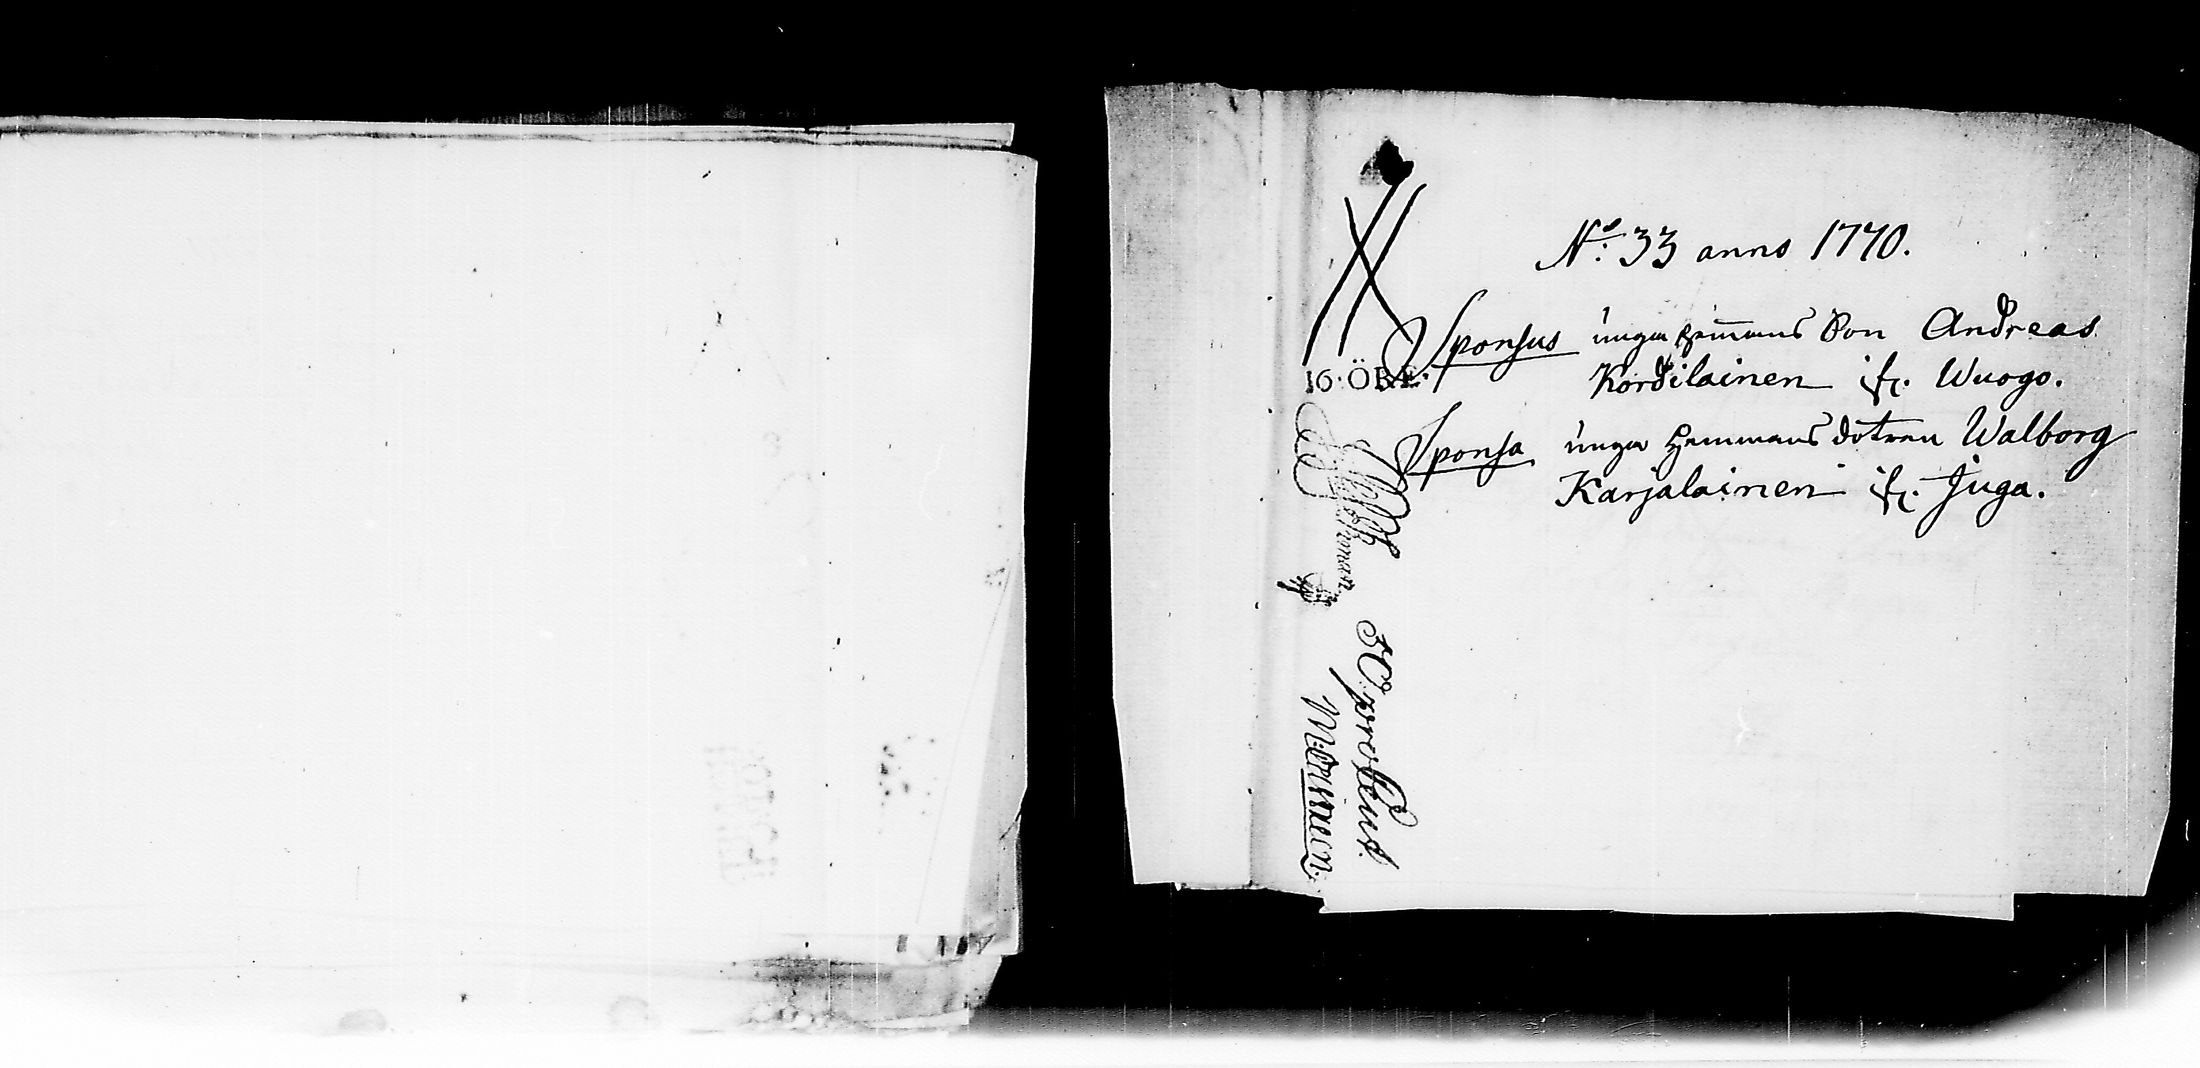 No: 33 anno 1770.
Sponsus unga hem̄ans Son Andreas
Kordilainen ifr. Wuogo.
Sponsa unga Hemmans dotren Walborg
Karjalainen ifr. Juga.
16·ÖRE·